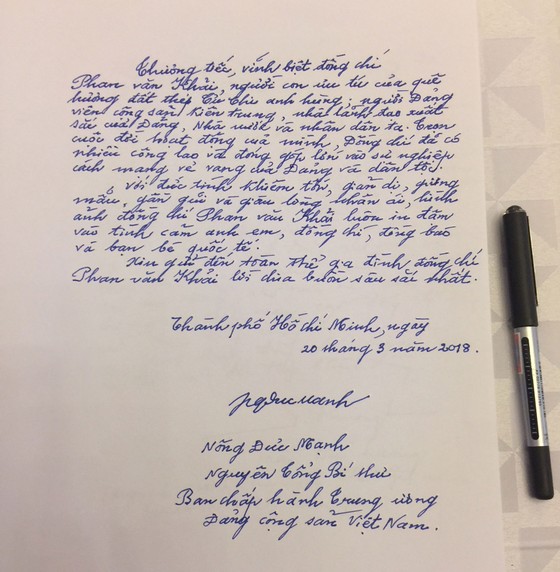 Thương tiếc, vĩnh biệt đồng chí
Phan Văn Khải, người con ưu tú của quê
hương đất thép Củ Chi anh hùng, người Đảng
viên cộng sản kiên trung, nhà lãnh đạo xuất
sắc của Đảng, Nhà nước và nhân dân ta. Trọn
cuộc đời hoạt động của mình, Đồng chí đã có
nhiều công lao và đóng góp lớn vào sự nghiệp
cách mạng vẻ vang của Đảng và dân tộc.
Với đức tính khiêm tốn, giản dị, gương
mẫu, gần gũi và giàu lòng nhân ái, hình
ảnh đồng chí Phan Văn Khải luôn in đậm
vào tình cảm anh em, đồng chí, đồng bào
và bạn bè quốc tế.
Xin gửi đến toàn thể gia đình đồng chí
Phan Văn Khải lời chia buồn sâu sắc nhất.
Thành phố Hồ Chí Minh, ngày
20 tháng 3 năm 2018.
Nông Đức Mạnh
Nguyên Tổng Bí thư
Ban chấp hành Trung ương
Đảng cộng sản Việt Nam.